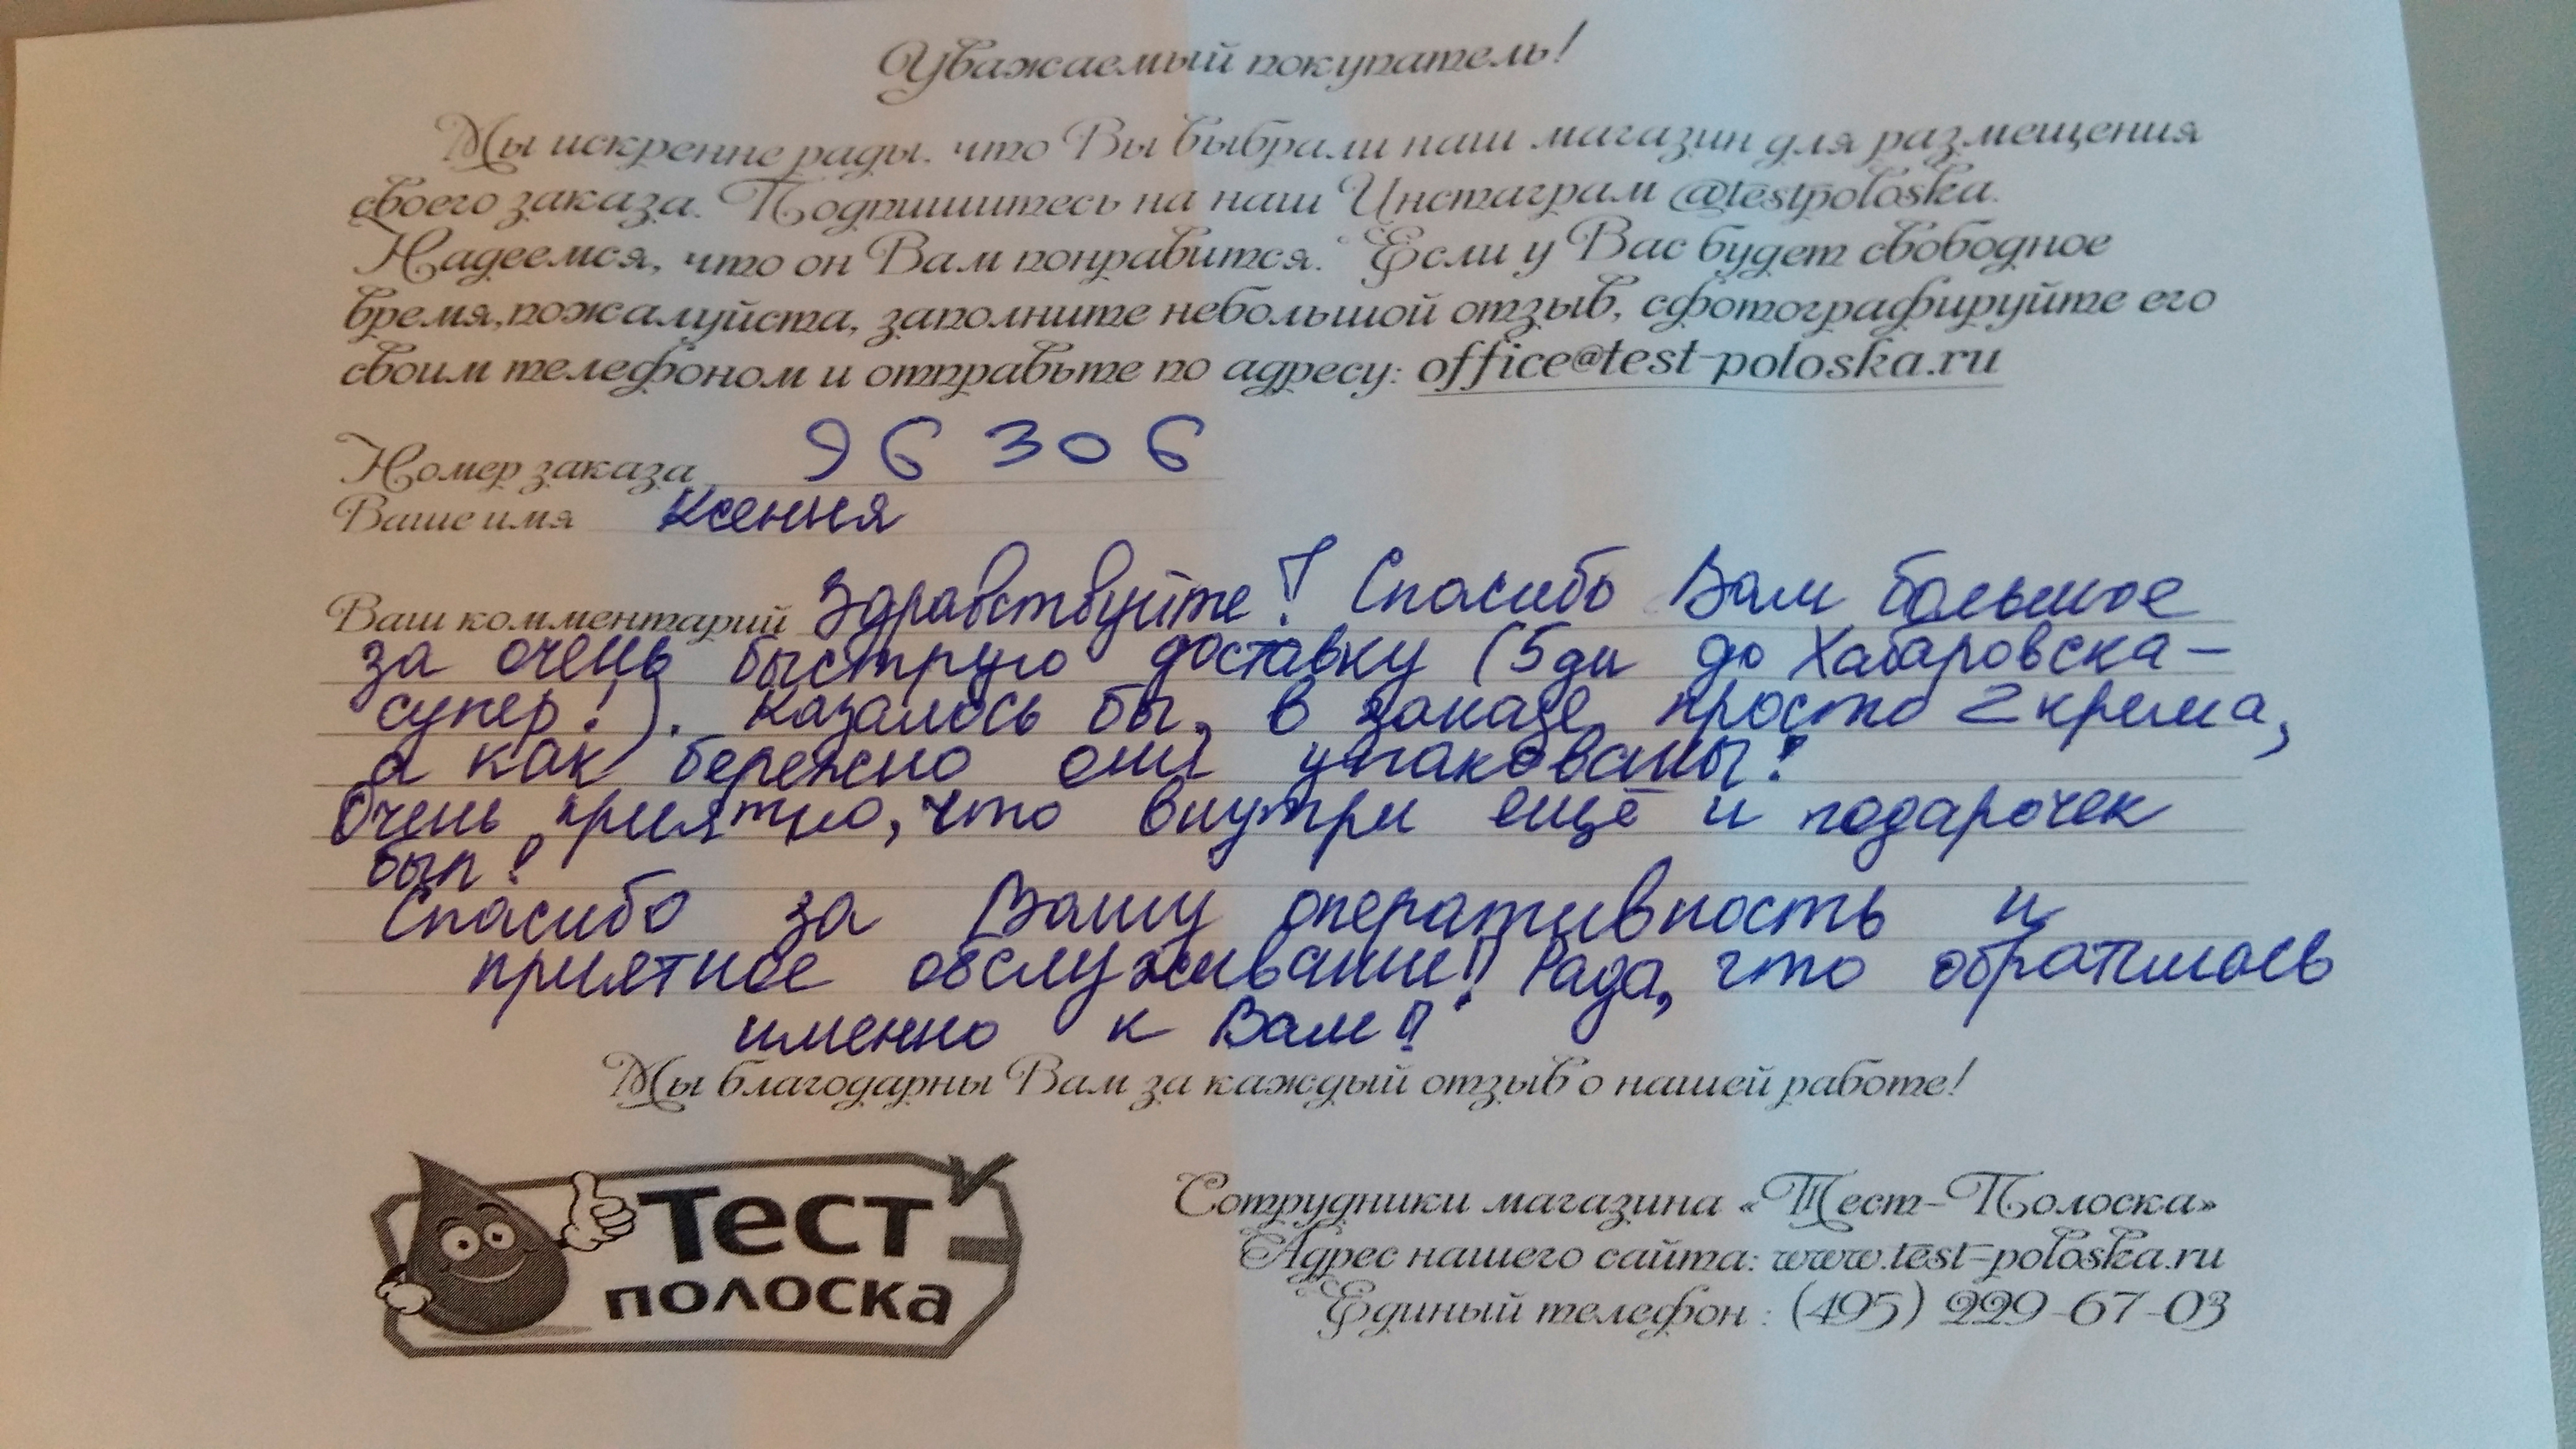 Уважаемый покупатель!
Мы искренне рады, что Вы выбрали наш магазин для размещения
своего заказа. Подпишитесь на наш Инстаграм @testpoloska.
Надеемся, что он Вам понравится. Если у Вас будет свободное
время,пожалуйста, заполните небольшой отзыв, сфотографируйте его
своим телефоном и отправьте по адресу: office@test-poloska.ru
Номер заказа 96306
Ваше имя Ксения
Ваш комментарий Здравствуйте! Спасибо Вам большое
за очень быструю доставку (5 дн до Хабаровска -
супер!). Казалось бы, в заказе просто 2 крема,
а как бережно они упакованы!
Очень приятно, что внутри ещё и подарочек
был!
Спасибо за Вашу оперативность и
приятное обслуживание!! Рада, что обратилась
именно к Вам!!
Мы благодарны Вам за каждый отзыв о нашей работе!
Тест
полоска
Сотрудники магазина «Тест-Полоска»
Адрес нашего сайта: www.test-poloska.ru
Единый телефон : (495) 229-67-03